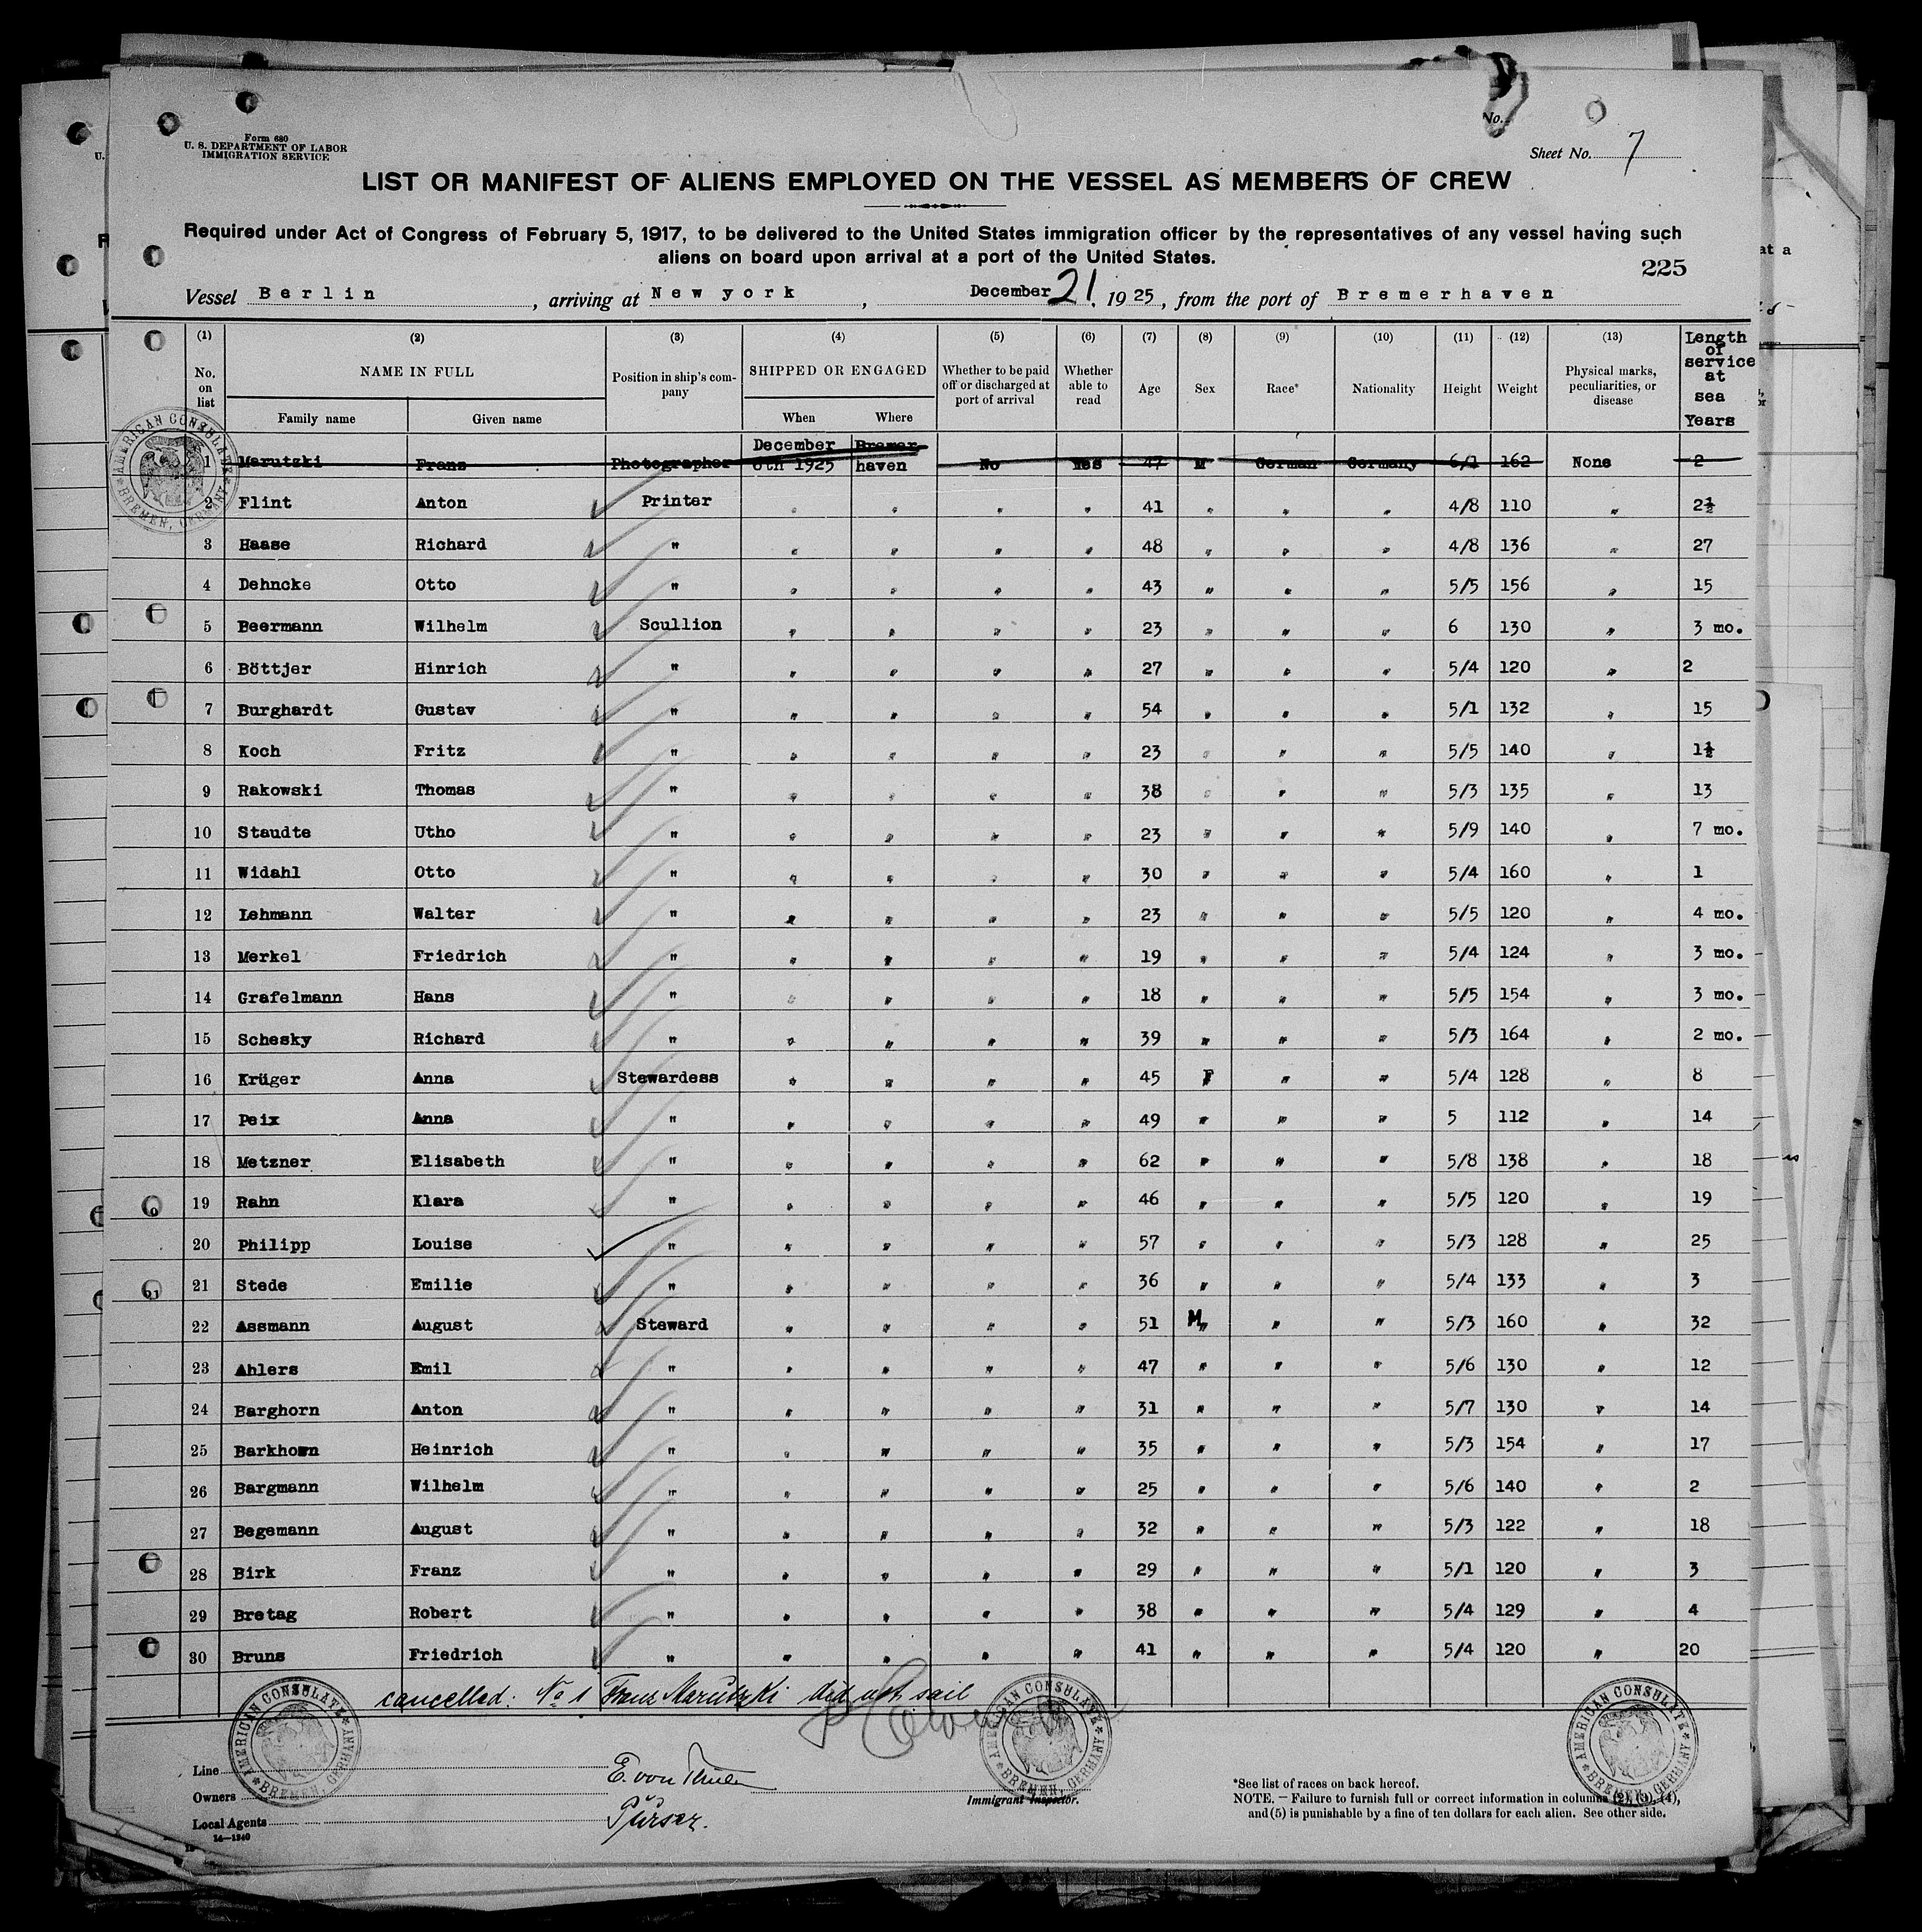 No.
Form 680
U. S. DEPARTMENT OF LABOR
IMMIGRATION SERVICE
Sheet No. 7
LIST OR MANIFEST OF ALIENS EMPLOYED ON THE VESSEL AS MEMBERS OF CREW
Required under Act of Congress of February 5, 1917, to be delivered to the United States immigration officer by the representatives of any vessel having such
aliens on board upon arrival at a port of the United States.
225
Vessel Berlin, arriving at New york, December 21, 1925, from the port of Bremerhaven
(1) (2) (3) (4) (5) (6) (7) (8) (9) (10) (11) (12) (13) Length of service at sea Years
No. on list NAME IN FULL Position in ship's company SHIPPED OR ENGAGED Whether to be paid off or discharged at port of arrival Whether able to read Age Sex Race* Nationality Height Weight Physical marks, peculiarities, or disease
Family name Given name When Where
1 Marutzki Franz Photographer December 8th 1925 Bremerhaven No Yes 47 M German Germany 6/1 162 None 2
2 Flint Anton Printer " " " " 41 " " " 4/8 110 " 2½
3 Haase Richard " " " " " 48 " " " 4/8 136 " 27
4 Dehncke Otto " " " " " 43 " " " 5/5 156 " 15
5 Beermann Wilhelm Scullion " " " " 23 " " " 6 130 " 3 mo.
6 Böttjer Hinrich " " " " " 27 " " " 5/4 120 " 2
7 Burghardt Gustav " " " " " 54 " " " 5/1 132 " 15
8 Koch Fritz " " " " " 23 " " " 5/5 140 " 1½
9 Rakowski Thomas " " " " " 38 " " " 5/3 135 " 13
10 Staudte Utho " " " " " 23 " " " 5/9 140 " 7 mo.
11 Widahl Otto " " " " " 30 " " " 5/4 160 " 1
12 Lehmann Walter " " " " " 23 " " " 5/5 120 " 4 mo.
13 Merkel Friedrich " " " " " 19 " " " 5/4 124 " 3 mo.
14 Grafelmann Hans " " " " " 18 " " " 5/5 154 " 3 mo.
15 Schesky Richard " " " " " 39 " " " 5/3 164 " 2 mo.
16 Krüger Anna Stewardess " " " " 45 F " " 5/4 128 " 8
17 Peix Anna " " " " " 49 " " " 5 112 " 14
18 Metzner Elisabeth " " " " " 62 " " " 5/8 138 " 18
19 Rahn Klara " " " " " 46 " " " 5/5 120 " 19
20 Philipp Louise " " " " " 57 " " " 5/3 128 " 25
21 Stede Emilie " " " " " 36 " " " 5/4 133 " 3
22 Assmann August Steward " " " " 51 M " " " 5/3 160 " 32
23 Ahlers Emil " " " " " 47 " " " 5/6 130 " 12
24 Barghorn Anton " " " " " 31 " " " 5/7 130 " 14
25 Barkhown Heinrich " " " " " 35 " " " 5/3 154 " 17
26 Bargmann Wilhelm " " " " " 25 " " " 5/6 140 " 2
27 Begemann August " " " " " 32 " " " 5/3 122 " 18
28 Birk Franz " " " " " 29 " " " 5/1 120 " 3
29 Bretag Robert " " " " " 38 " " " 5/4 129 " 4
30 Bruns Friedrich " " " " " 41 " " " 5/4 120 " 20
cancelled: No 1 Franz Marutzki did not sail
AMERICAN CONSULATE
BREMEN, GERMANY
Line
Owners
Local Agents
14—1240
E. von
Purser.
Immigrant Inspector.
*See list of races on back hereof.
NOTE. — Failure to furnish full or correct information in columns (2), (3), (4),
and (5) is punishable by a fine of ten dollars for each alien. See other side.